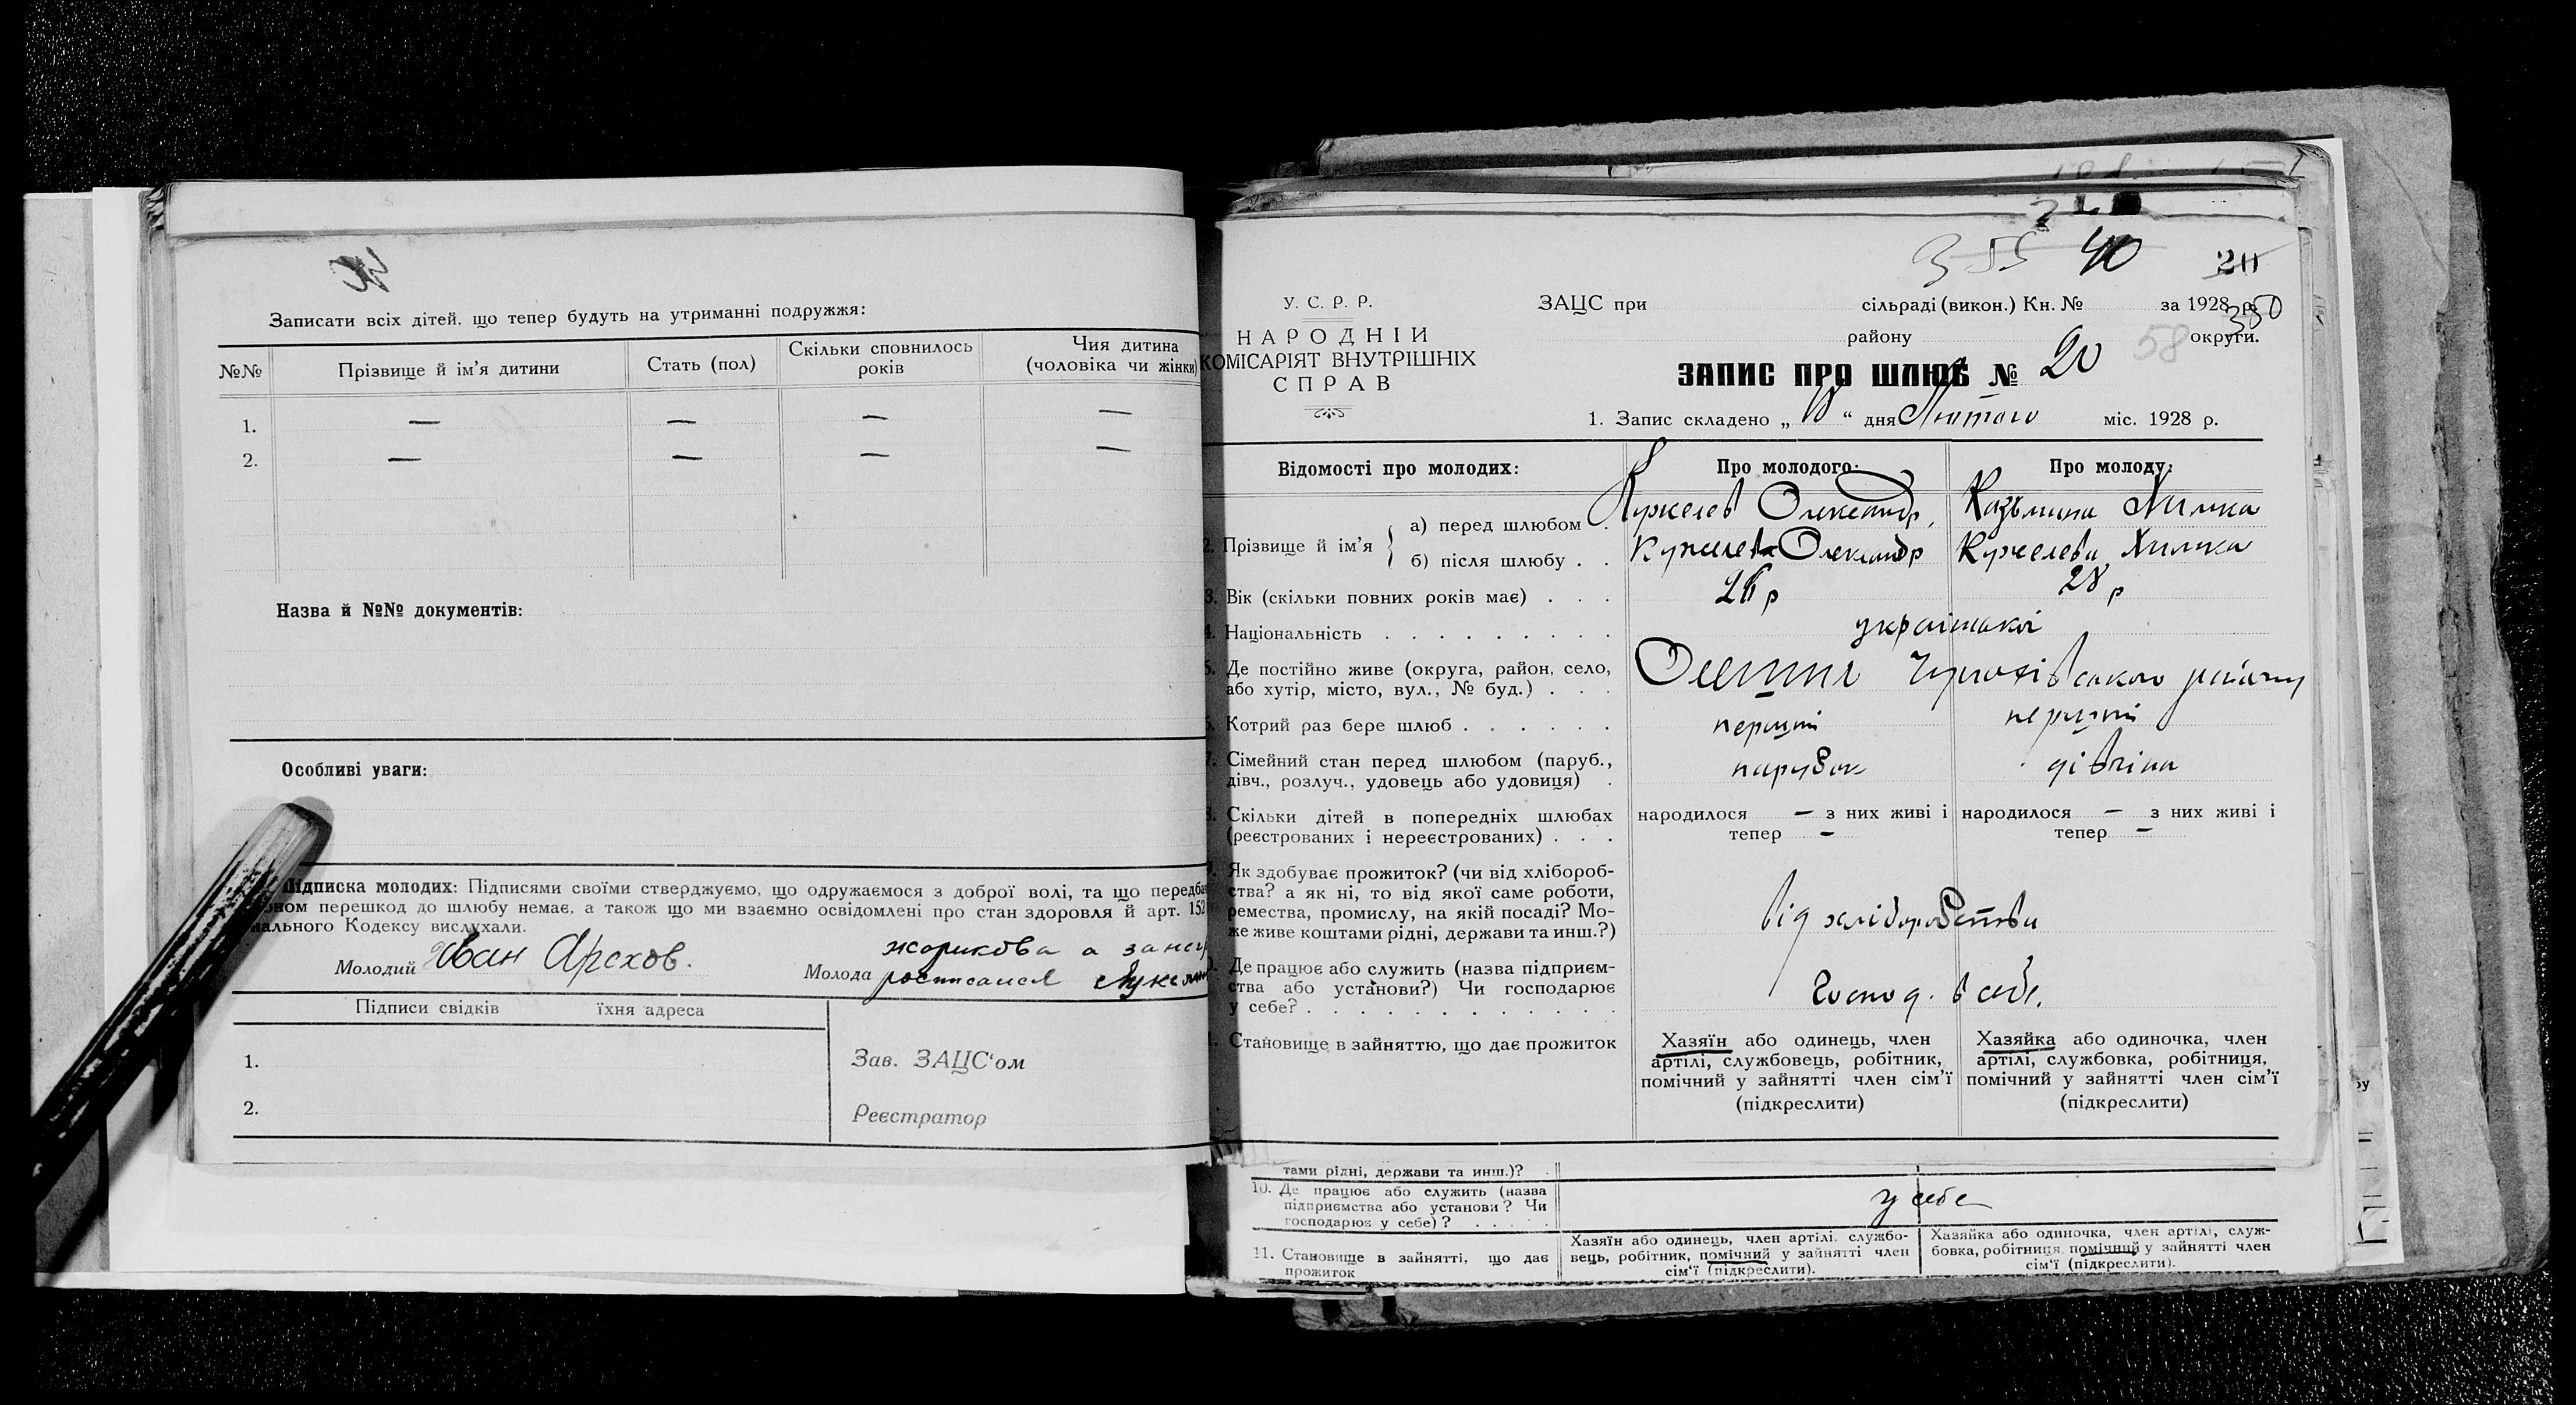 Записати всіх дітей, що тепер будуть на утриманні подружжя:
№№ Прізвище й ім'я дитини Стать (пол) Скільки сповнилось років Чия дитина (чоловіка чи жінки)
1. — — — —
2. — — — —
Назва й №№ документів:
Особливі уваги:
Підписка молодих: Підписями своїми стверджуємо, що одружаємося з доброї волі, та що передба
ном перешкод до шлюбу немає, а також що ми взаємно освідомлені про стан здоровля й арт. 152
ального Кодексу вислухали.
Молодий Иван Орехов.
Молода жарикова а за неи
росписался
Підписи свідків їхня адреса
1.
2.
Зав. ЗАЦС'ом
Реєстратор
355 40 20
350
У. С. Р. Р.
НАРОДНІЙ
КОМІСАРІЯТ ВНУТРІШНІХ
СПРАВ
ЗАЦС при сільраді (викон.) Кн. № за 1928 р.
району 58 округи.
ЗАПИС ПРО ШЛЮБ № 20
1. Запис складено „ “ дня Лютого міс. 1928 р.
Відомості про молодих: Про молодого: Про молоду:
2. Прізвище й ім'я
а) перед шлюбом . Олександр Казьмина Химка
б) після шлюбу . . Олександр Кужелева Химка
3. Вік (скільки повних років має) . . . 26 р 28 р
4. Національність . . . . . . . . . українські
5. Де постійно живе (округа, район, село,
або хутір, місто, вул., № буд.) . . . району
6. Котрий раз бере шлюб . . . . . . перший перший
7. Сімейний стан перед шлюбом (паруб.,
дівч., розлуч., удовець або удовиця) . парубок дівчина
8. Скільки дітей в попередніх шлюбах
(реєстрованих і нереєстрованих) . . .
народилося — з них живі і тепер —
народилося — з них живі і тепер —
9. Як здобуває прожиток? (чи від хлібороб-
ства? а як ні, то від якої саме роботи,
ремества, промислу, на якій посаді? Мо-
же живе коштами рідні, держави та инш.?)
від хліборобства
10. Де працює або служить (назва підприєм-
ства або установи?) Чи господарює
у себе? . . . . . . . . . . . .
Господ. в себе.
11. Становище в зайняттю, що дає прожиток
Хазяїн або одинець, член
артілі, службовець, робітник,
помічний у зайнятті член сім'ї
(підкреслити)
Хазяйка або одиночка, член
артілі, службовка, робітниця,
помічний у зайнятті член сім'ї
(підкреслити)
тами рідні, держави та инш.)?
10. Де працює або служить (назва
підприємства або установи? Чи
господарює у себе)? . . . . .
у себе
11. Становище в зайнятті, що дає
прожиток
Хазяїн або одинець, член артілі, службо-
вець, робітник, помічний у зайнятті член
сім'ї (підкреслити).
Хазяйка або одиночка, член артілі, служ-
бовка, робітниця помічний у зайнятті член
сім'ї (підкреслити).